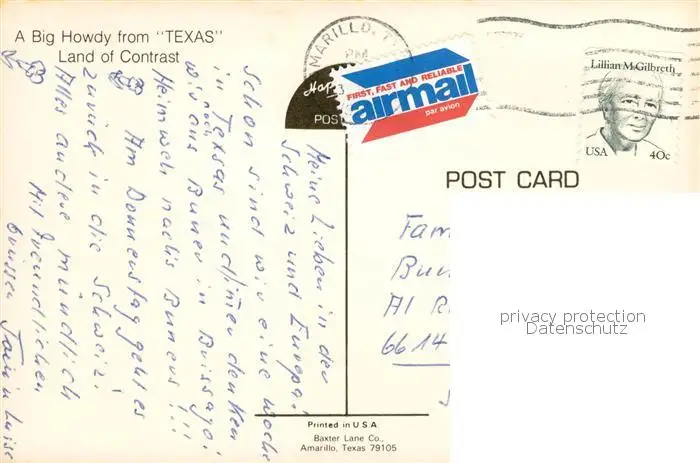 A Big Howdy from "TEXAS"
Land of Contrast
AMARILLO, T
PM
FIRST, FAST AND RELIABLE
airmail
par avion
POST
Lillian M. Gilbreth
USA 40c
POST CARD
Meine Lieben in der
Schweiz und Europa!
Schon sind wir eine Woche
in Texas und immer denken
wir noch ans Bunev in Brissago!
Heimweh nachs Bunevs!!!
Am Donnerstag geht es
zurück in die Schweiz!
Alles andere mündlich
Mit freundlichen
Grüssen Luise
Fam
Bu
Al R
6614
privacy protection
Datenschutz
Printed in U.S.A.
Baxter Lane Co.,
Amarillo, Texas 79105